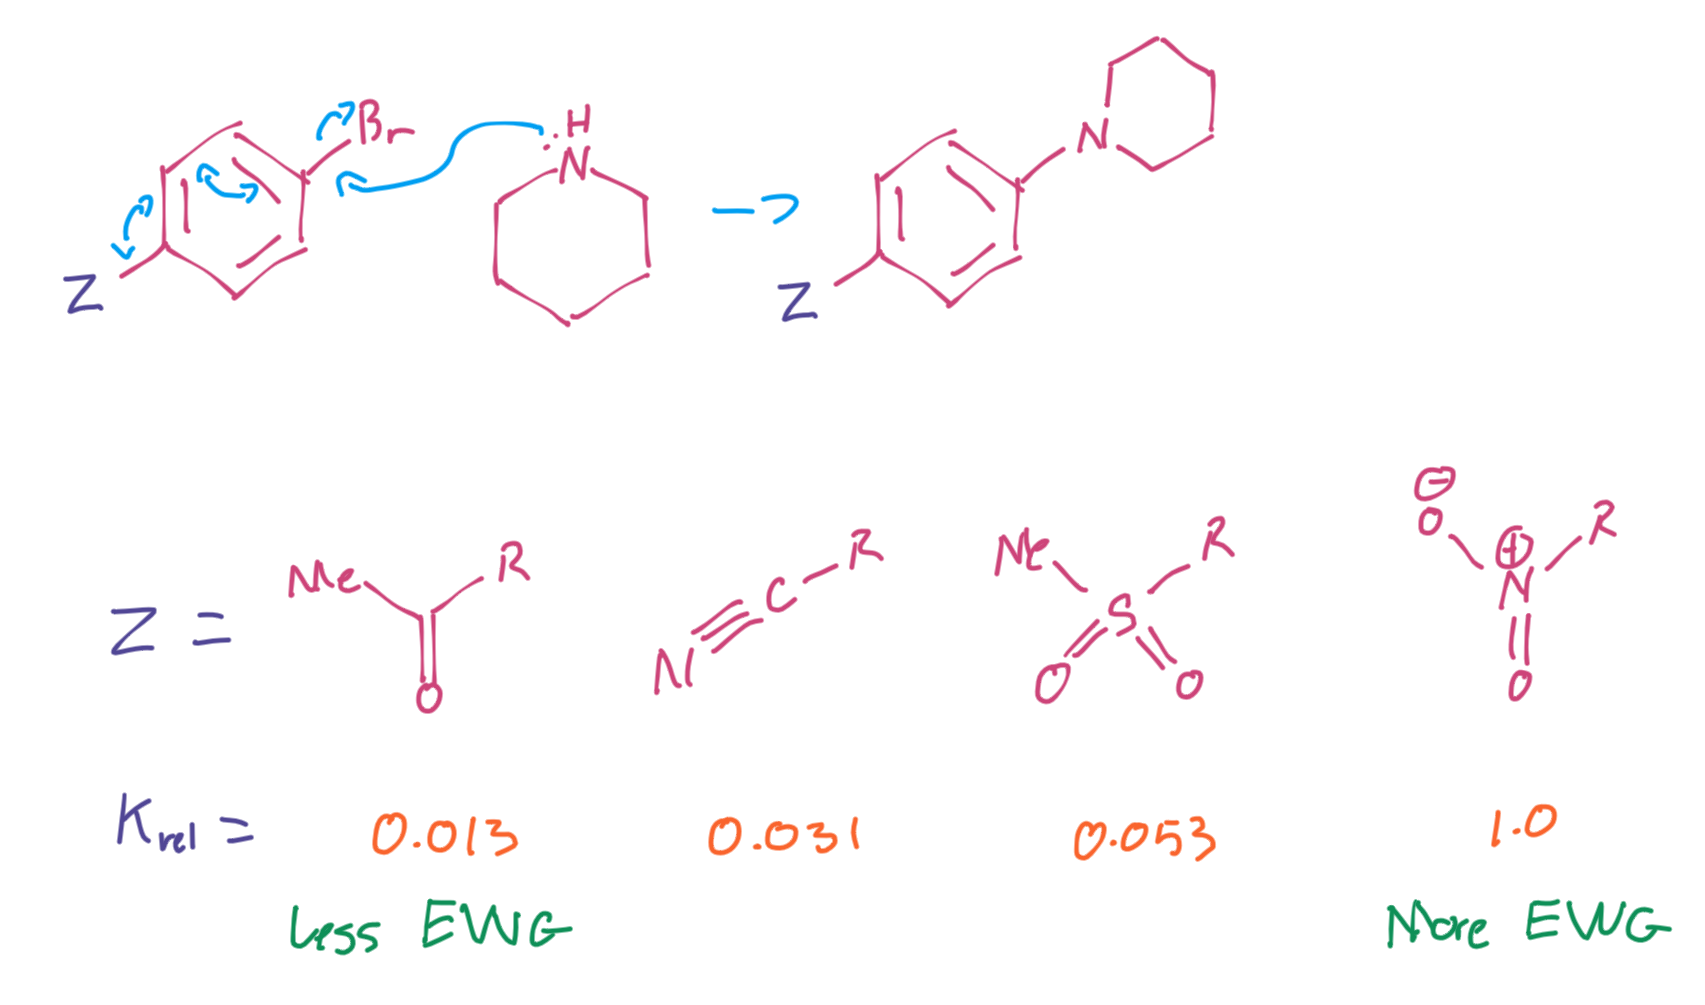 Br
H
N
Z
N
Z
Z =
Me R O
N C R
Me R S O O
⊖ O ⊕ N R O
Krel = 0.013 0.031 0.053 1.0
Less EWG More EWG